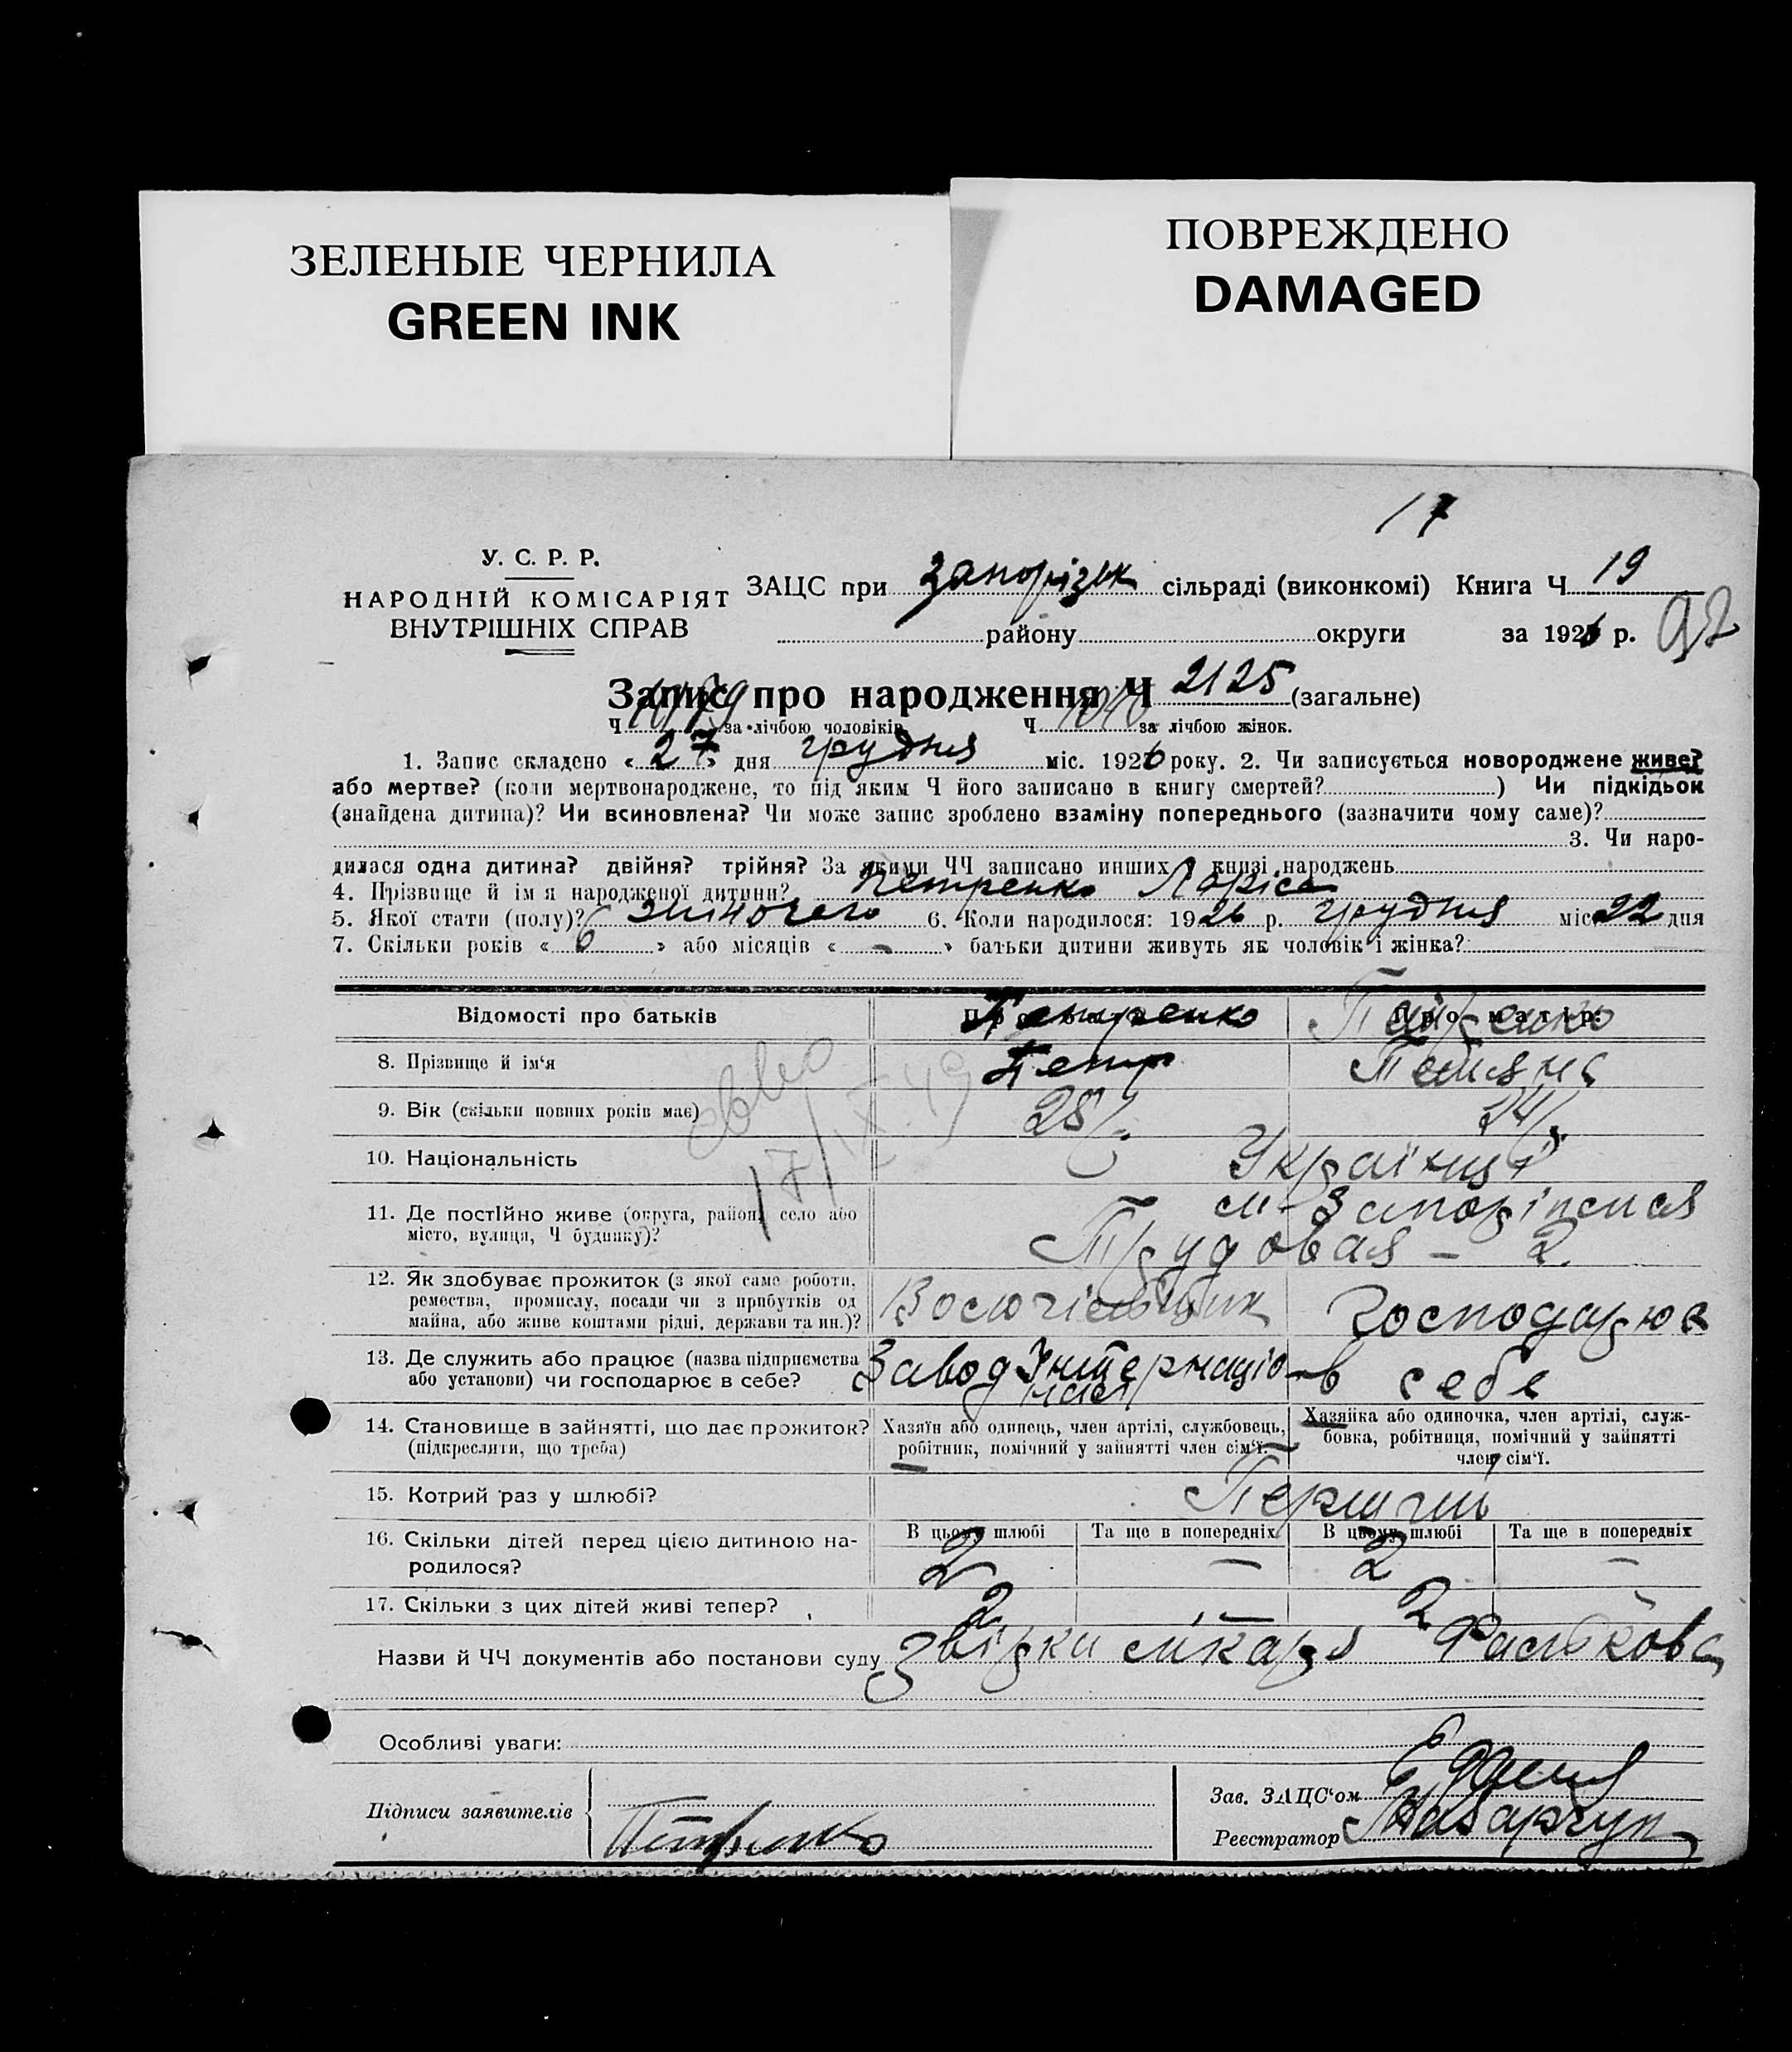 ЗЕЛЕНЫЕ ЧЕРНИЛА
GREEN INK
ПОВРЕЖДЕНО
DAMAGED
17
У. С. Р. Р.
НАРОДНІЙ КОМІСАРІЯТ
ВНУТРІШНІХ СПРАВ
ЗАЦС при Запорізьк сільраді (виконкомі) Книга Ч. 19
району округи за 1926 р.
Запис про народження Ч 2125 (загальне)
Ч за лічбою чоловіків Ч 1040 за лічбою жінок.
1. Запис складено « 27 » дня грудня міс. 1926 року. 2. Чи записується новороджене живе?
або мертве? (коли мертвонароджене, то під яким Ч його записано в книгу смертей? ) Чи підкідьок
(знайдена дитина)? Чи всиновлена? Чи може запис зроблено взаміну попереднього (зазначити чому саме)?
3. Чи наро-
дилася одна дитина? двійня? трійня? За якими ЧЧ записано инших книзі народжень
4. Прізвище й ім я народженої дитини? Петренко Ларіса
5. Якої стати (полу)? жіночого 6. Коли народилося: 1926 р. грудня міс. 22 дня
7. Скільки років « 6 » або місяців « – » батьки дитини живуть як чоловік і жінка?
Відомості про батьків Петренко Петренко
8. Прізвище й ім‘я Петр Тетяна
9. Вік (скільки повних років має) 28 24
10. Національність Українці
11. Де постійно живе (округа, район, село або м-Запоріжжя
місто, вулиця, Ч будинку)? Трудовая – 2.
12. Як здобуває прожиток (з якої саме роботи,
ремества, промислу, посади чи з прибутків од
майна, або живе коштами рідні, держави та ин.)? Господарює
13. Де служить або працює (назва підприємства Завод Інтернаціо- в себе
або установи) чи господарює в себе? нал
14. Становище в зайнятті, що дає прожиток? Хазяїн або одинець, член артілі, службовець, Хазяйка або одиночка, член артілі, служ-
(підкреслити, що треба) робітник, помічний у зайнятті член сім‘ї. бовка, робітниця, помічний у зайнятті
член сім‘ї.
15. Котрий раз у шлюбі? Перший
16. Скільки дітей перед цією дитиною на- В цьому шлюбі Та ще в попередніх В цьому шлюбі Та ще в попередніх
родилося? 2 – 2 –
17. Скільки з цих дітей живі тепер? 2 – 2
Назви й ЧЧ документів або постанови суду лікаря
Особливі уваги:
Підписи заявителів Петренко
Зав. ЗАЦС‘ом
Реєстратор